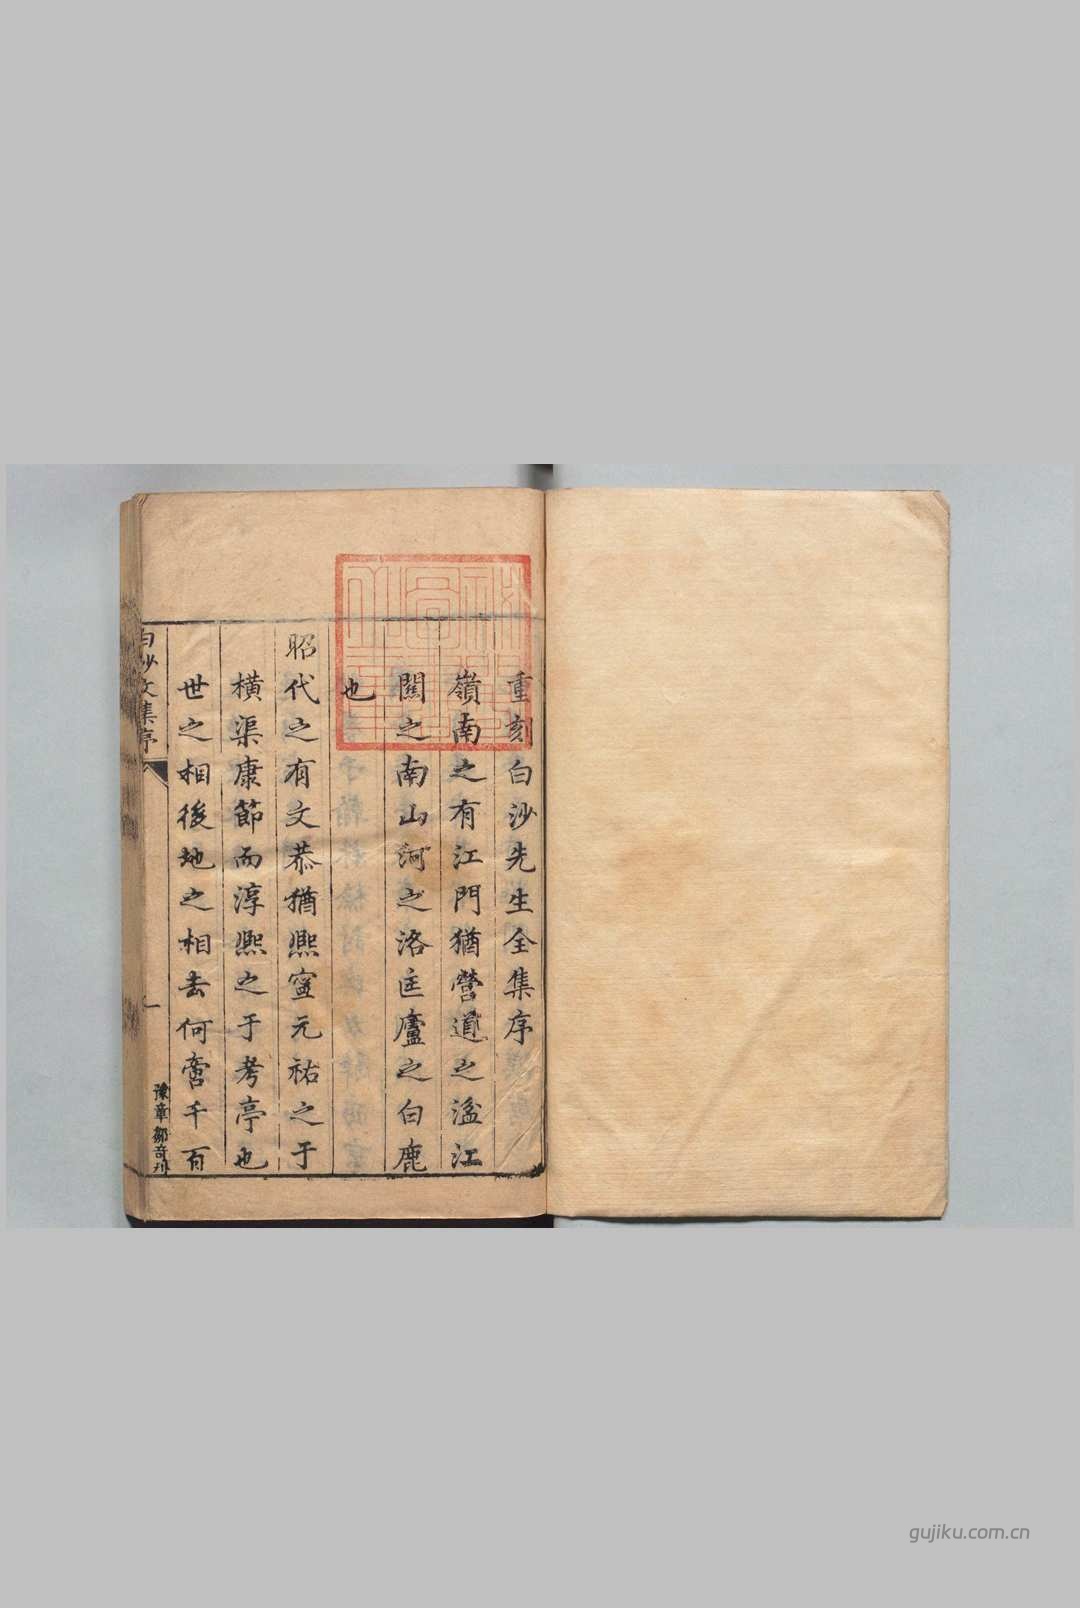 重刻白沙先生全集序
嶺南之有江門猶營道之湓江
關之南山河之洛匡廬之白鹿
也
昭代之有文恭猶熙寧元祐之于
橫渠康節而淳熙之于考亭也
世之相後地之相去何啻千百
白沙文集序
一
豫章鄒奇刊
gujiku.com.cn